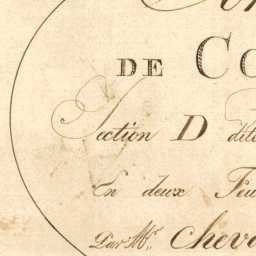 DE CO
Section D dite
En deux Feu
Par Mr. Cheva